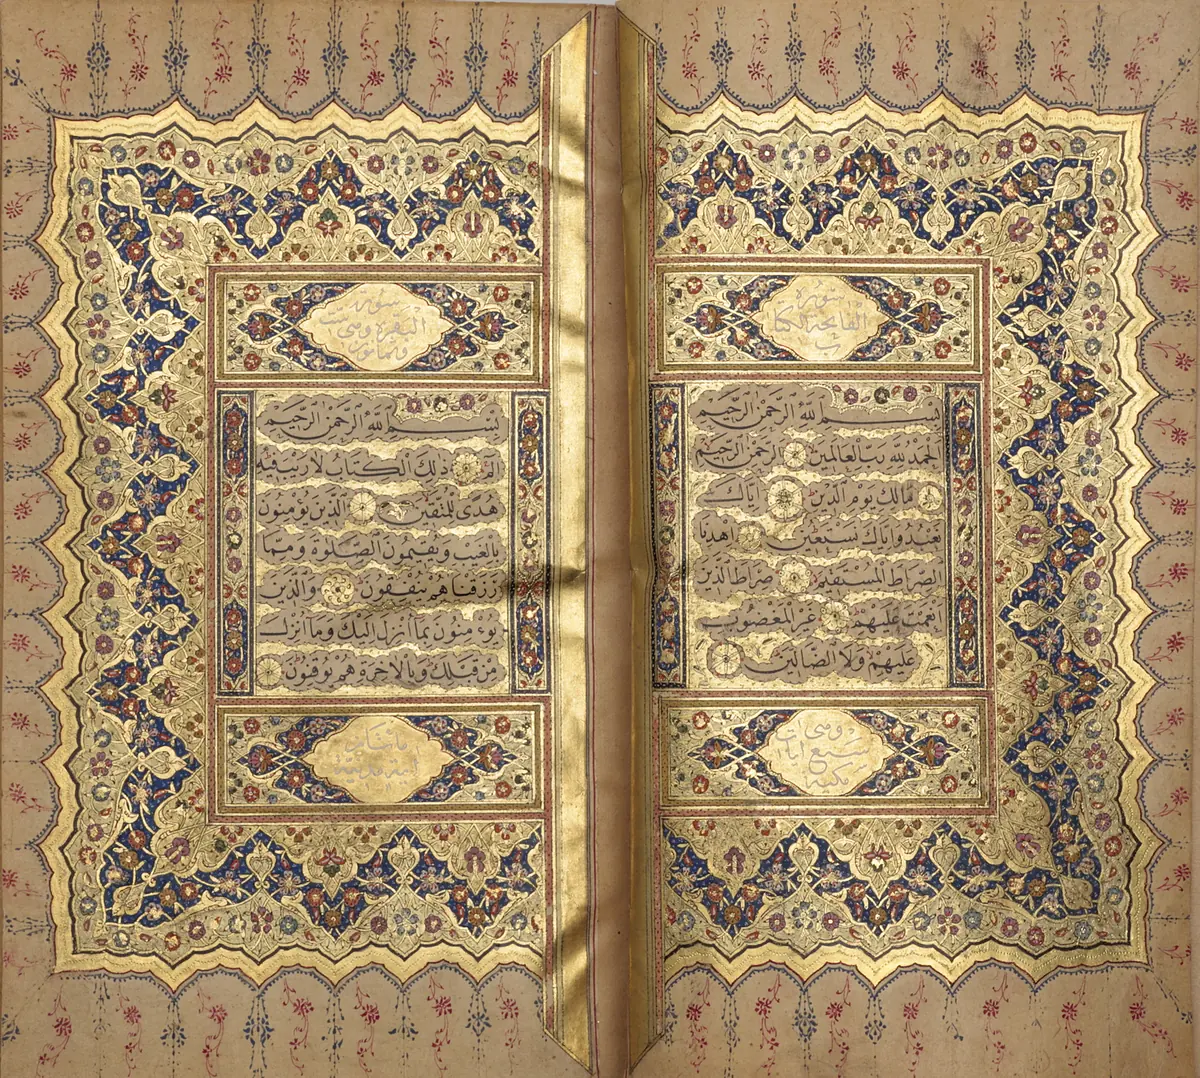 سورة
الفاتحة الكتا
ب
بسم الله الرحمن الرحيم
الحمد لله رب العالمين الرحمن الرحيم
مالك يوم الدين اياك
نعبد واياك نستعين اهدنا
الصراط المستقيم صراط الذين
انعمت عليهم غير المغضوب
عليهم ولا الضالين
وهي
سبع ايات
مكية
سورة
البقرة وهي
وثمانون
بسم الله الرحمن الرحيم
الم ذلك الكتاب لا ريب فيه
هدى للمتقين الذين يؤمنون
بالغيب ويقيمون الصلوة ومما
رزقناهم ينفقون والذين
يؤمنون بما انزل اليك وما انزل
من قبلك وبالاخرة هم يوقنون
مائتان